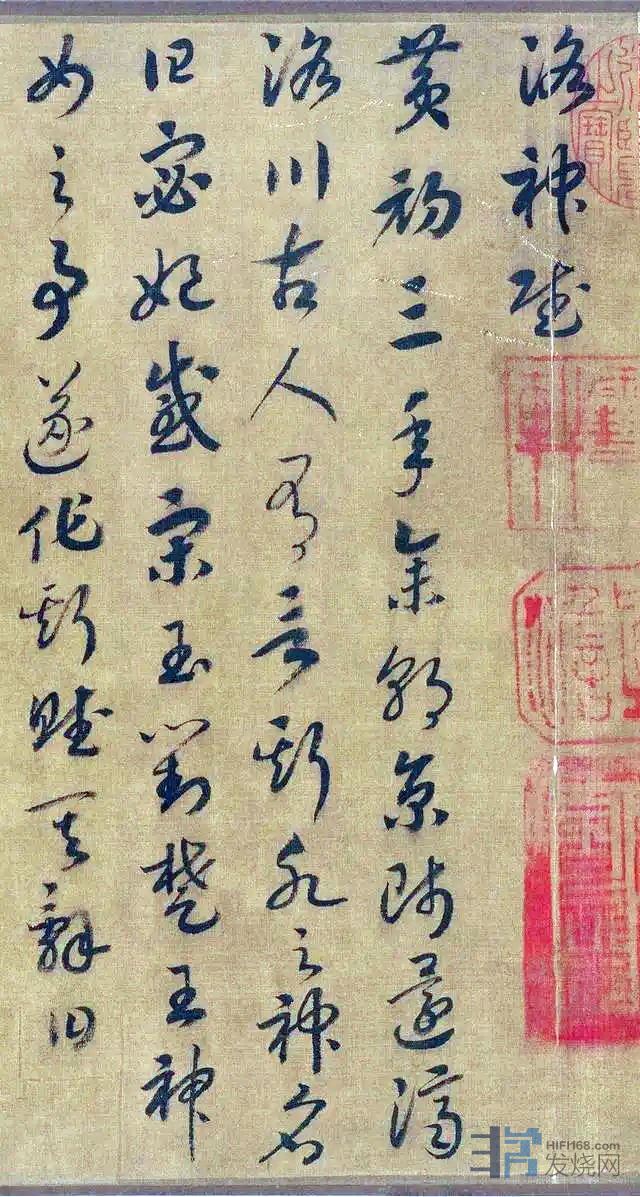 洛神賦
黄初三年余朝京師還濟
洛川古人有言斯水之神名
曰宓妃感宋玉對楚王神
女之事遂作斯賦其辭曰
HIFI168.com
发烧网